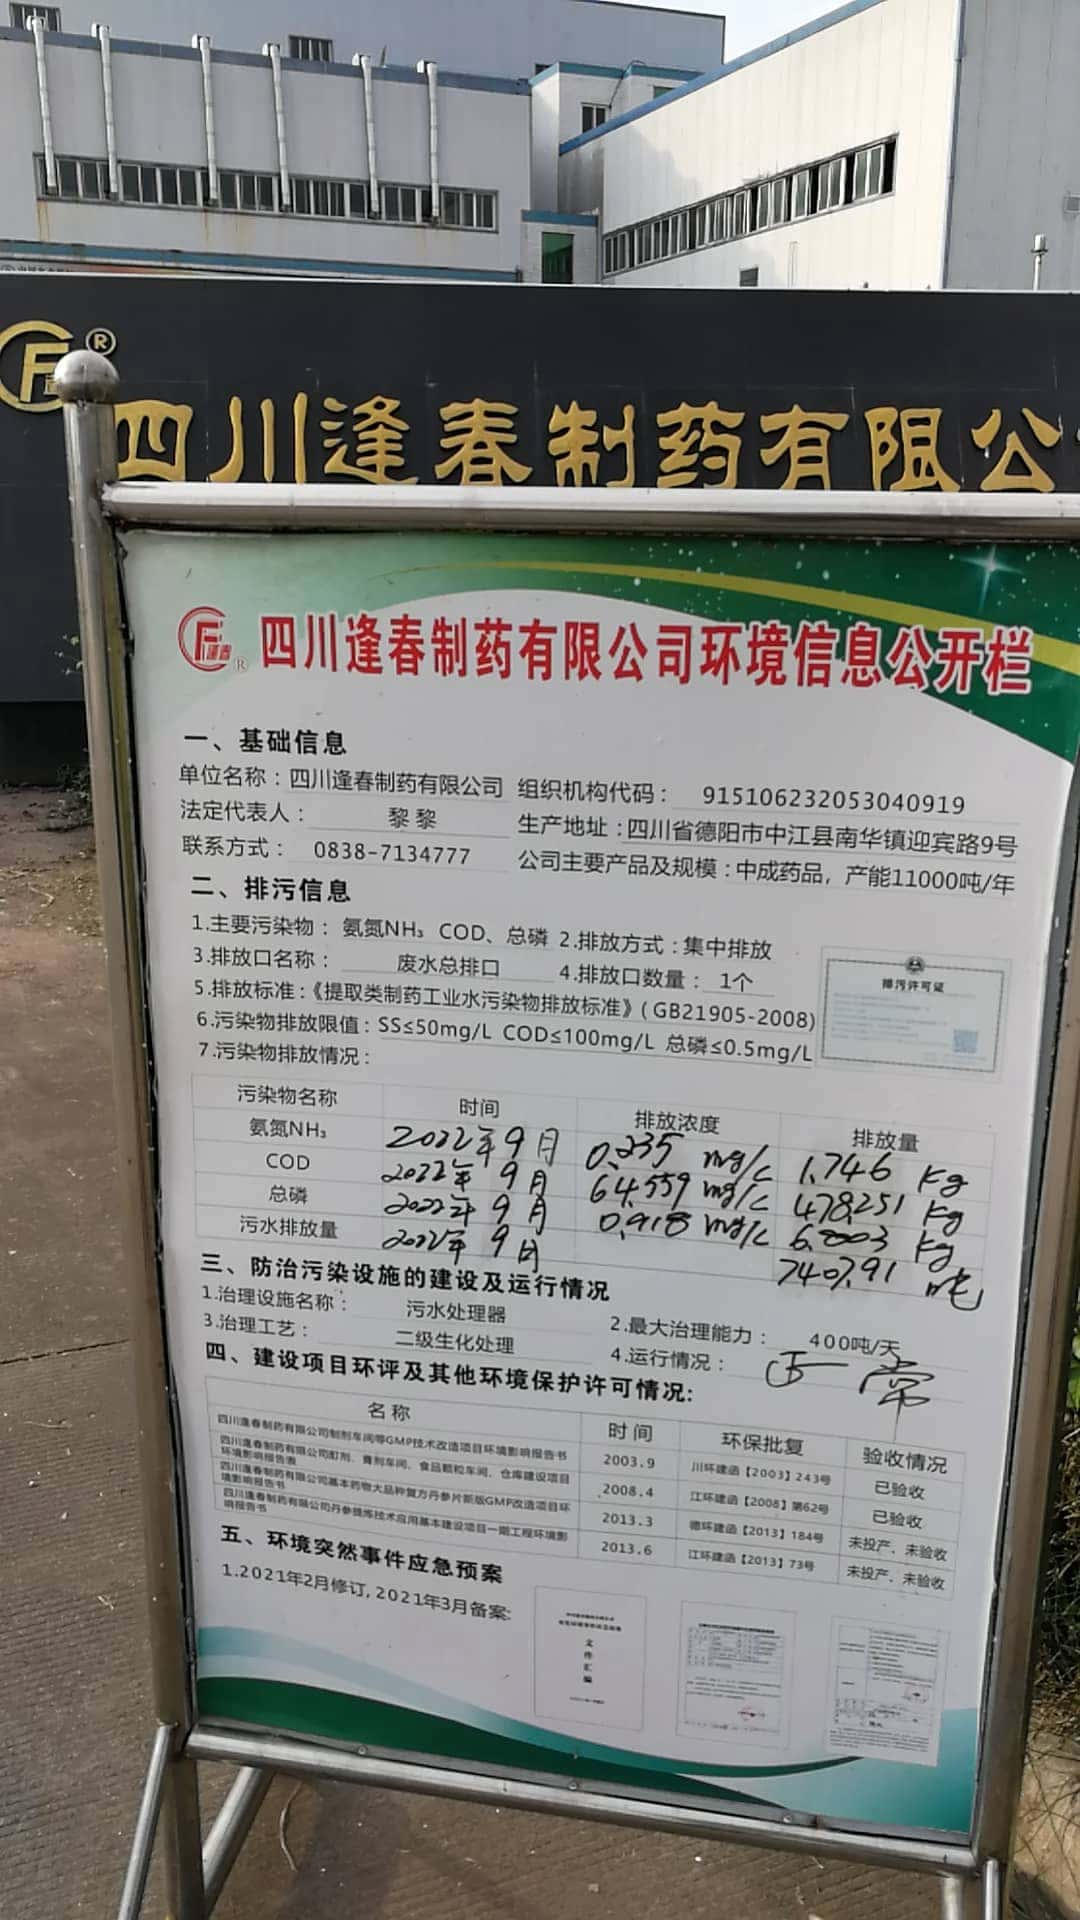 四川逢春制药有限公
四川逢春制药有限公司环境信息公开栏
一、基础信息
单位名称：四川逢春制药有限公司 组织机构代码： 915106232053040919
法定代表人： 黎黎 生产地址：四川省德阳市中江县南华镇迎宾路9号
联系方式： 0838-7134777 公司主要产品及规模：中成药品，产能11000吨/年
二、排污信息
1.主要污染物： 氨氮NH₃ COD、总磷 2.排放方式：集中排放
3.排放口名称： 废水总排口 4.排放口数量： 1个
5.排放标准：《提取类制药工业水污染物排放标准》（GB21905-2008）
6.污染物排放限值：SS≤50mg/L COD≤100mg/L 总磷≤0.5mg/L
7.污染物排放情况：
排污许可证
污染物名称 时间 排放浓度 排放量
氨氮NH₃ 2022年9月 0.235 mg/L 1.746 Kg
COD 2022年9月 64.559 mg/L 478.251 Kg
总磷 2022年9月 0.918 mg/L Kg
污水排放量 2022年9月 7407.91 吨
三、防治污染设施的建设及运行情况
1.治理设施名称： 污水处理器 2.最大治理能力： 400吨/天
3.治理工艺： 二级生化处理 4.运行情况： 正常
四、建设项目环评及其他环境保护许可情况:
名称 时间 环保批复 验收情况
四川逢春制药有限公司制剂车间等GMP技术改造项目环境影响报告书 2003.9 川环建函【2003】243号 已验收
四川逢春制药有限公司酊剂、膏剂车间、食品颗粒车间、仓库建设项目
环境影响报告表 2008.4 江环建函【2008】第62号 已验收
四川逢春制药有限公司基本药物大品种复方丹参片新版GMP改造项目环
境影响报告书 2013.3 德环建函【2013】184号 未投产、未验收
四川逢春制药有限公司丹参提炼技术应用基本建设项目一期工程环境影
响报告书 2013.6 江环建函【2013】73号 未投产、未验收
五、环境突然事件应急预案
1.2021年2月修订, 2021年3月备案:
文件汇编